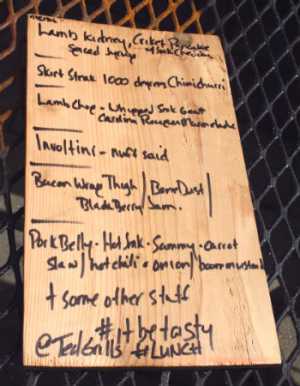 Lamb Kidney, Criket Pancake
Spiced Syrup
Skirt Steak 1000 degrees Chimichurri
Lamb Chop - Whipped Smk Goat
Marmalade
Involtini - nuff said
Bacon Wrap Thigh / Bone Dust /
BlackBerry Jam.
Pork Belly - Hot Smk - Sammy - carrot
Slaw / hot chili + onion /
+ some other stuff
#itbetasty
@TedGrills #LUNCH